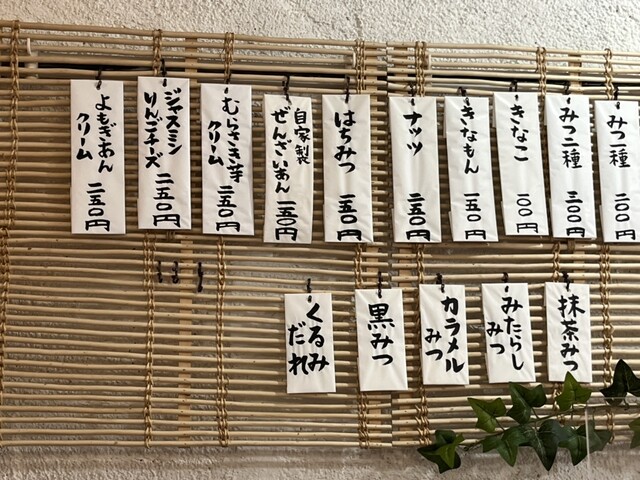 みつ一種 二〇〇円
みつ二種 三〇〇円
きなこ 一〇〇円
きなもん 一五〇円
ナッツ 二五〇円
はちみつ 一五〇円
自家製
ぜんざいあん 一五〇円
むらさき芋
クリーム 二五〇円
ジャスミン
りんごチーズ 二五〇円
よもぎあん
クリーム 二五〇円
抹茶みつ
みたらし
みつ
カラメル
みつ
黒みつ
くるみ
だれ